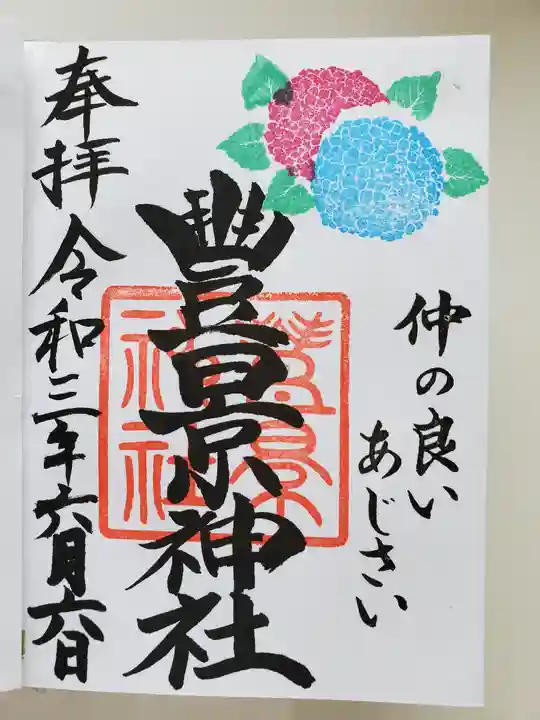 仲の良い
あじさい
豐景神社
奉拝 令和三年六月六日